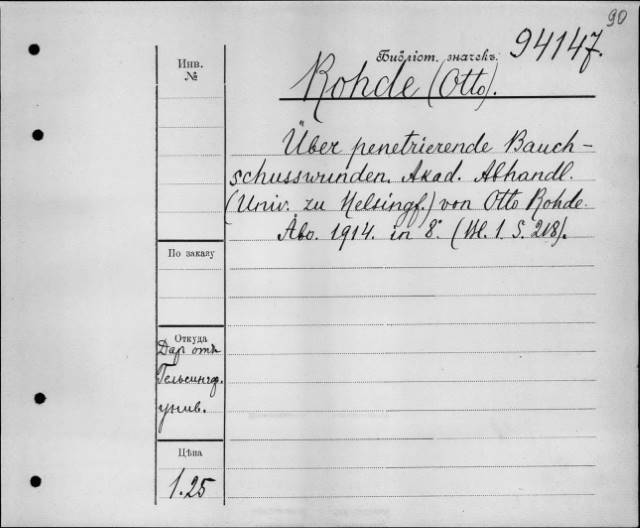 90
Инв.
№
Библіот. значекъ.
94147.
Rohde (Otto).
Über penetrierende Bauch-
schusswunden. Akad. Abhandl.
(Univ. zu Helsingf.) von Otto Rohde.
Åbo. 1914. in 8°. (Bl. 1. S. 218).
По заказу
Откуда
Даръ отъ
Гельсингф.
унив.
Цѣна
1.25